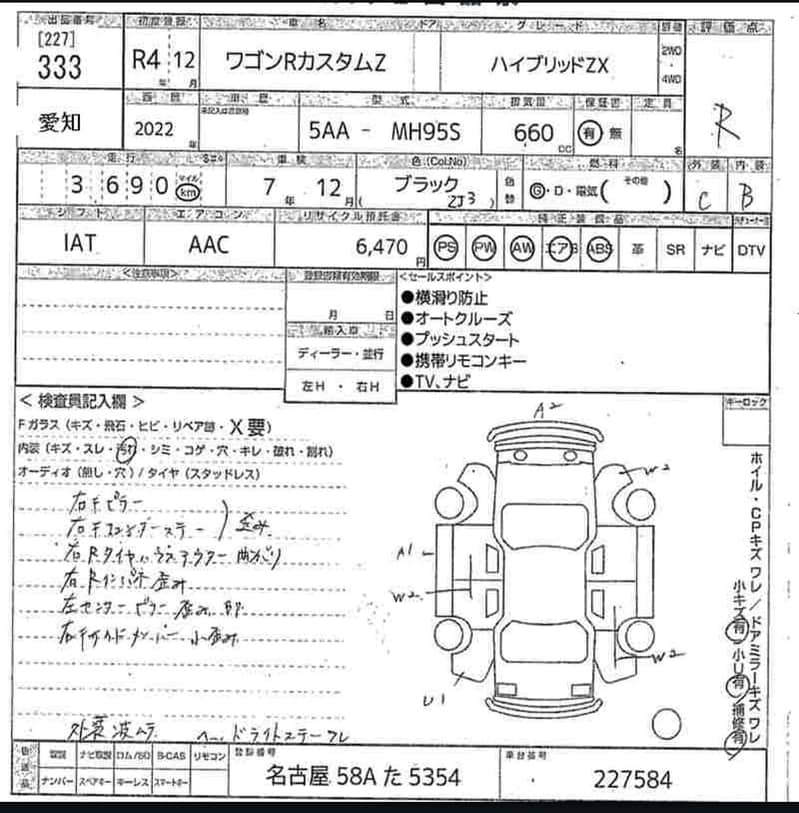 出品番号 初度登録 車名 ドア グレード 評価点
[227]
333
R4 12
年 月
ワゴンRカスタムZ
ハイブリッドZX
2WD
・
4WD
R
愛知
西暦 用歴 型式 排気量 保証書 定員
2022
年
5AA - MH95S
660
CC
有 無
名
走行 車検 色(Col.No) 燃料 外装 内装
3690
マイル
km
7 年 12 月
ブラック
(ZJ3)
色替
G・D・電気( その他 )
C B
シフト エアコン リサイクル預託金 純正装備品
IAT
AAC
6,470
円
PS PW AW エアB ABS 革 SR ナビ DTV
<注意事項>
登録書類有効期限
月 日
輸入車
ディーラー・並行
左H ・ 右H
<セールスポイント>
●横滑り防止
●オートクルーズ
●プッシュスタート
●携帯リモコンキー
●TV、ナビ
<検査員記入欄>
Fガラス(キズ・飛石・ヒビ・リペア跡・X要)
内装(キズ・スレ・汚れ・シミ・コゲ・穴・キレ・破れ・割れ)
オーディオ(無し・穴)/タイヤ(スタッドレス)
キーロック
右Fピラー
右Fフェンダーステー
歪み
右Rタイヤハウスアウター 曲がり
右Rインパネ 歪み
左センターピラー 歪み
右サイドメンバー 小歪み
外装波ムラ
ヘッドライトステーワレ
A2
W2
A1
W2
W2
U1
ホイル・CPキズ ワレ/ドアミラーキズ ワレ
小キズ有 小U有 補修有
取説 ナビ取説 ロム/SD B-CAS リモコン
ナンバー スペアキー キーレス スマートキー
登録番号
名古屋 58A た 5354
車台番号
227584